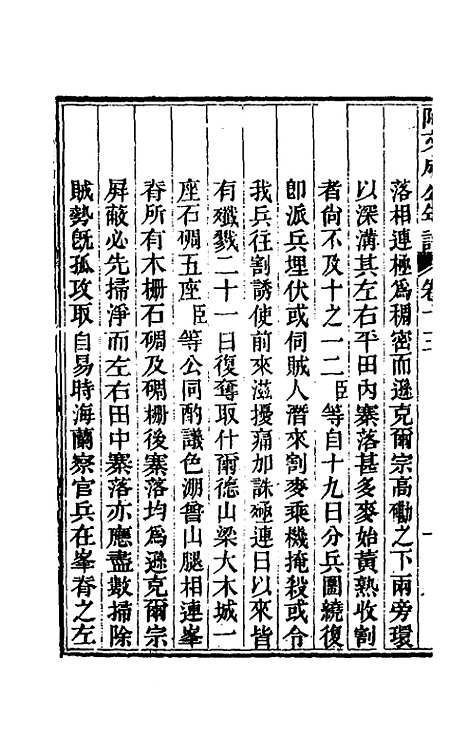 阿文成公年譜 卷十三
落相連極爲稠密而遜克爾宗高磡之下兩旁環
以深溝其左右平田內寨落甚多麥始黃熟收割
者尙不及十之一二臣等自十九日分兵圍繞復
卽派兵埋伏或伺賊人潛來割麥乘機掩殺或令
我兵往割誘使前來滋擾痛加誅殛連日以來皆
有殲戮二十一日復奪取什爾德山梁大木城一
座石碉五座臣等公同酌議色淜普山腿相連峯
脊所有木柵石碉及碉柵後寨落均爲遜克爾宗
屛蔽必先掃淨而左右田中寨落亦應盡數掃除
賊勢旣孤攻取自易時海蘭察官兵在峯脊之左